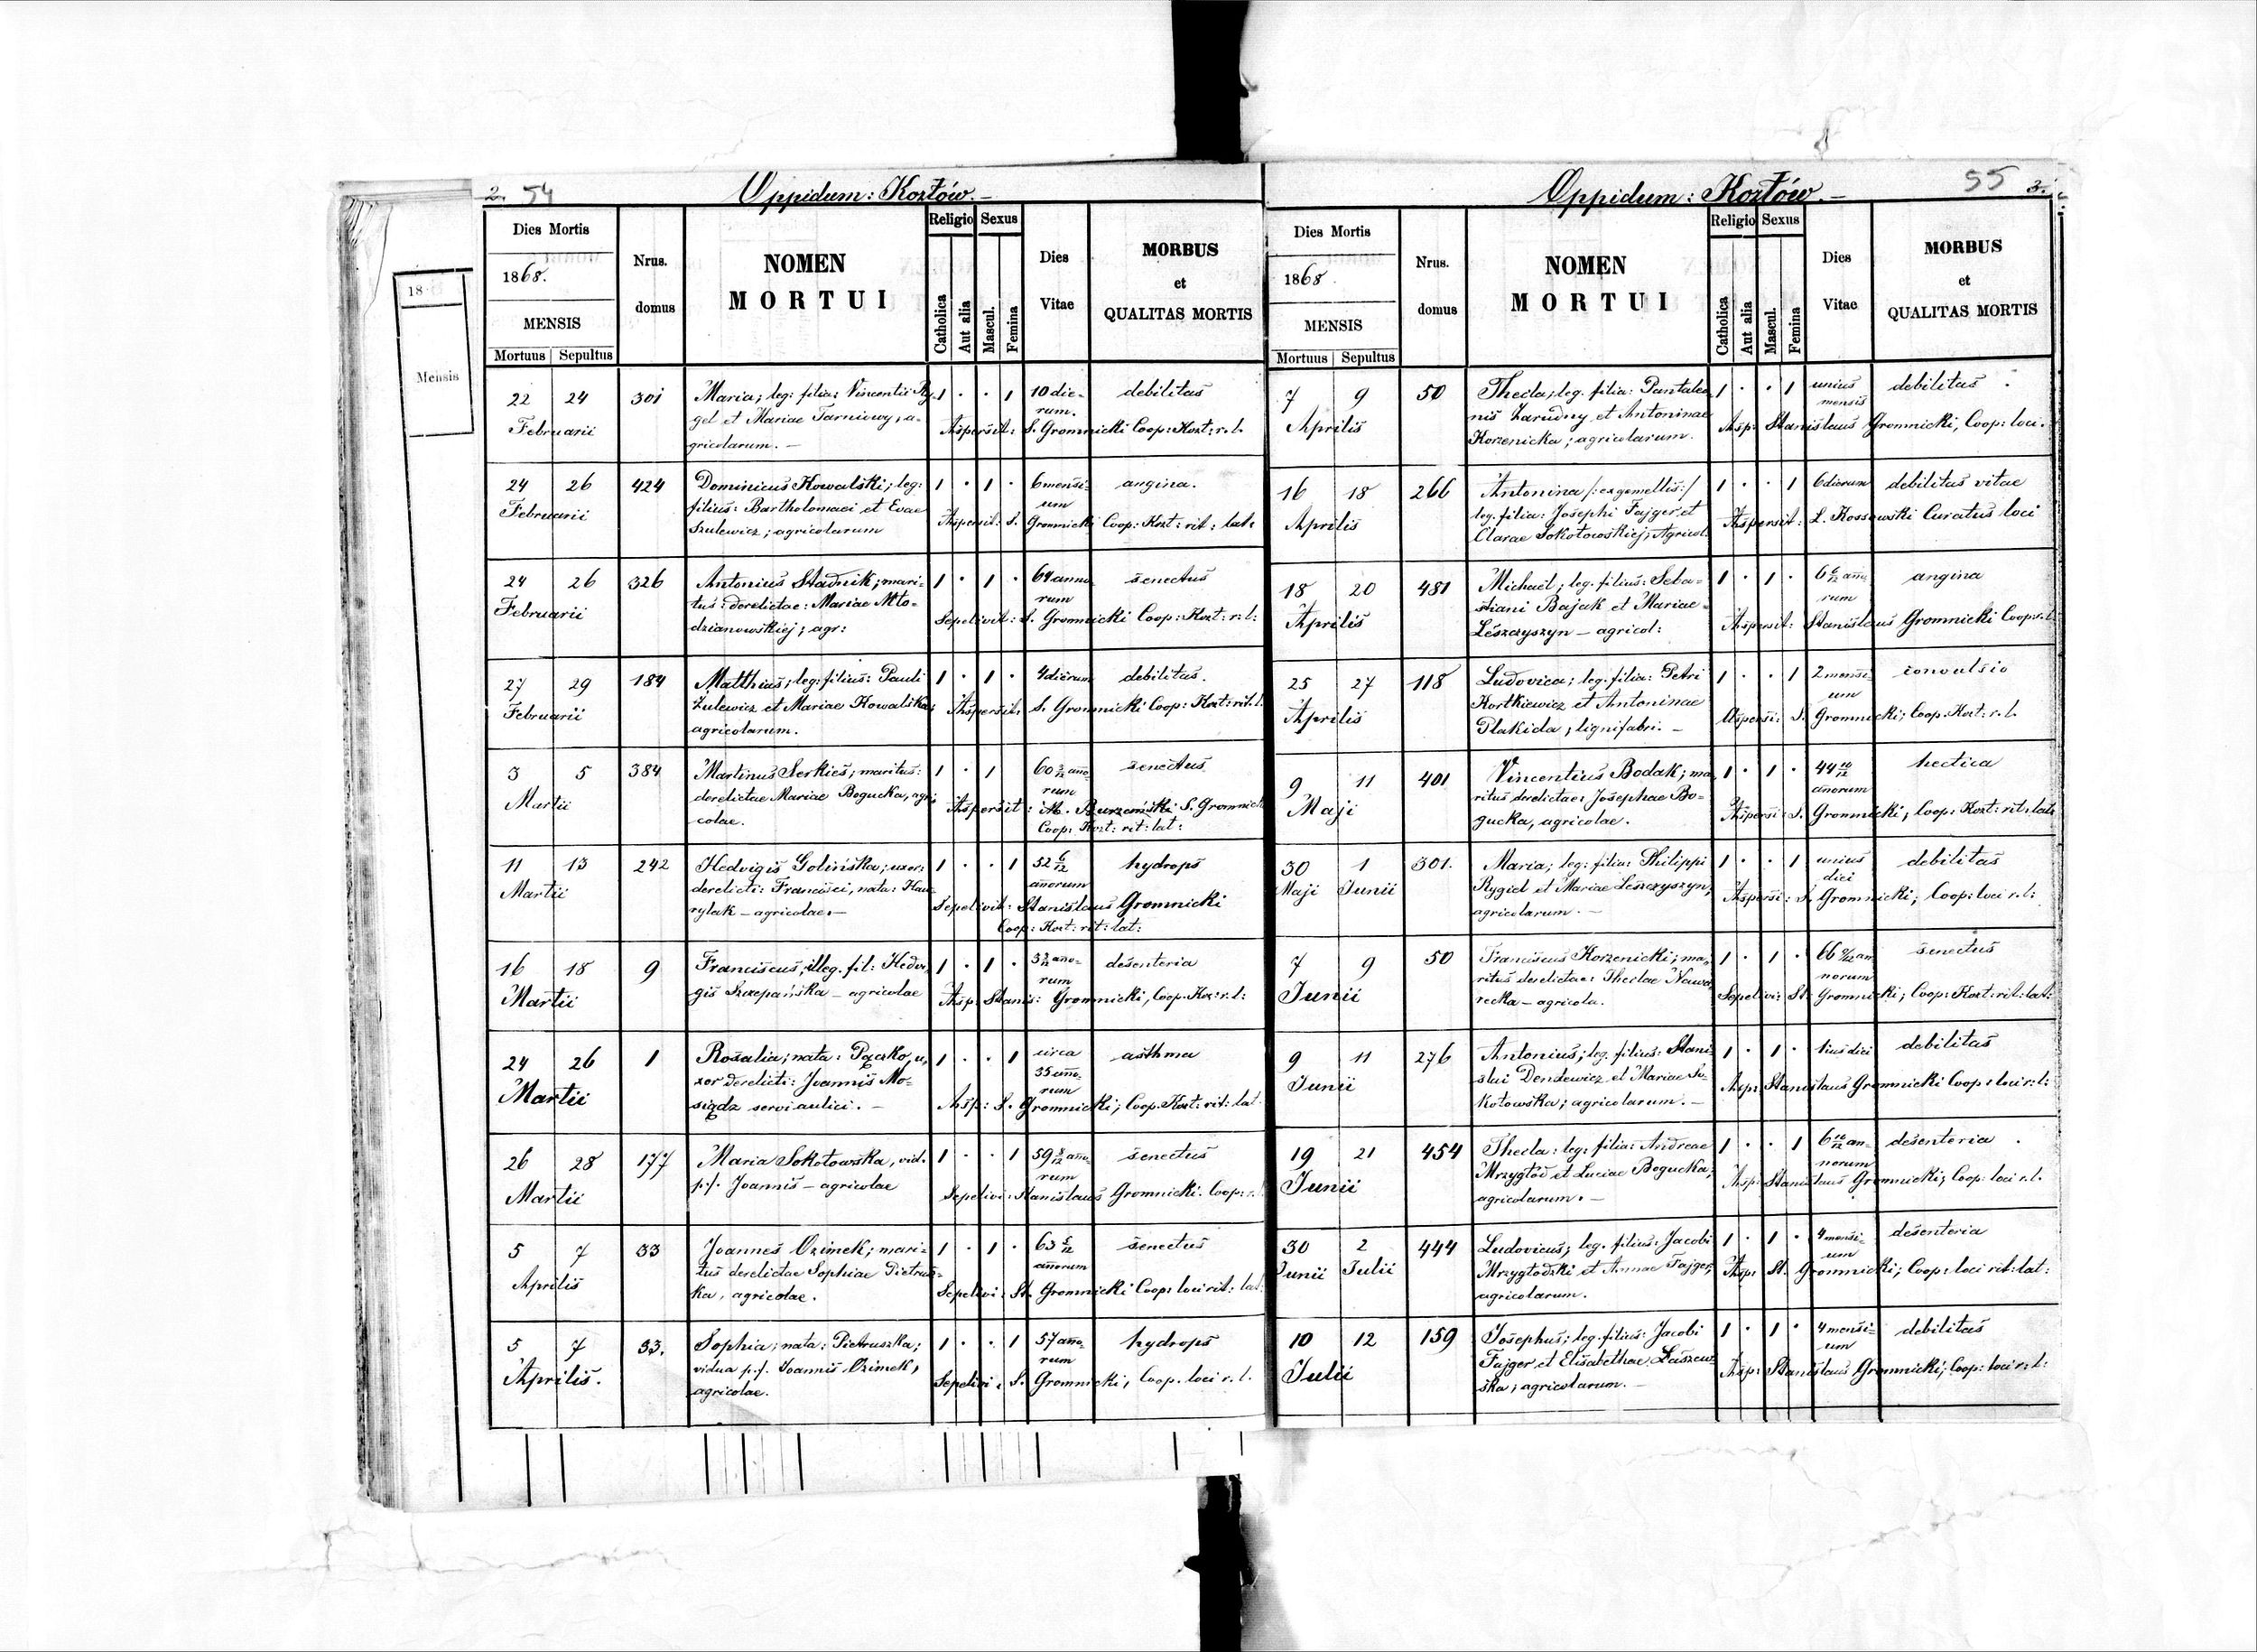 2. 54 Oppidum: Kozłów. –
Dies Mortis
1868.
MENSIS
Mortuus Sepultus
Nrus. domus
NOMEN
MORTUI
Religio
Catholica
Aut alia
Sexus
Mascul.
Femina
Dies
Vitae
MORBUS
et
QUALITAS MORTIS
18
Mensis
22 24 301 Maria; leg: filia: Vincentii Ry- 1 . . 1 10 die- debilitas
Februarii gel et Mariae Tarniowy; a- rum.
gricolarum. – Aspersit: S. Gromnicki Coop: Kozt: r. l.
24 26 424 Dominicus Kowalski; leg: 1 . 1 . 6 mensi- angina.
Februarii filius: Bartholomaei et Evae um
Szulewicz; agricolarum Aspersit: S. Gromnicki Coop: Kozt: rit: lat:
24 26 326 Antonius Stadnik; mari- 1 . 1 . 64 anno senectus
Februarii tus: derelictae: Mariae Mło- rum
dzianowskiej; agr: Sepelivit: S. Gromnicki Coop: Kozt: r: l:
27 29 184 Matthias; leg: filius: Pauli 1 . 1 . 4 dierum debilitas.
Februarii Żulewicz et Mariae Kowalska;
agricolarum. Aspersit: S. Gromnicki Coop: Kozt: rit. l.
3 5 384 Martinus Serkies; maritus: 1 . 1 60 3/12 año- senectus
Martii derelictae Mariae Bogucka, agri rum
colae. Aspersit: S. Gromnicki
Coop: Kozt: rit: lat:
11 13 242 Hedvigis Golińska; uxor: 1 . . 1 52 6/12 hydrops
Martii derelicti: Francisci, nata: Haw- añorum
rylak – agricolae. – Sepelivit: Stanislaus Gromnicki
Coop: Kozt: rit: lat:
16 18 9 Franciscus; illeg. fil: Hedvi- 1 . 1 . año- desenteria
Martii gis Szczepańska – agricolae rum
Asp: Stanis: Gromnicki, Coop. Koz: r. l:
24 26 1 Rosalia; nata: Pączko, u, 1 . . 1 circa asthma
Martii xor derelicti: Joannis Mo- 35 año-
siądz servi aulici. – rum
Asp: S. Gromnicki; Coop. Kozt: rit: lat.
26 28 177 Maria Sokołowska, vid. 1 . . 1 59 8/12 año- senectus
Martii p.f. Joannis – agricolae rum
Sepelivi: Stanislaus Gromnicki. Coop: r. l.
5 7 33 Joannes Ozimek; mari- 1 . 1 . 63 senectus
Aprilis tus derelictae Sophiae Pietrusz- añorum
ka, agricolae. Sepelivi: St. Gromnicki Coop: loci rit: lat:
5 7 33. Sophia; nata: Pietruszka; 1 . . 1 57 año- hydrops
Aprilis. vidua p.f. Joannis Ozimek, rum
agricolae. Sepelivi: S. Gromnicki, Coop. loci r. l.
Oppidum: Kozłów. – 55 3.
Dies Mortis
1868
MENSIS
Mortuus Sepultus
Nrus. domus
NOMEN
MORTUI
Religio
Catholica
Aut alia
Sexus
Mascul.
Femina
Dies
Vitae
MORBUS
et
QUALITAS MORTIS
7 9 50 Thecla; leg. filia: Pantaleo- 1 . . 1 unius debilitas
Aprilis nis Zarudny et Antoninae mensis
Korzenicka; agricolarum. Asp: Stanislaus Gromnicki, Coop: loci.
16 18 266 Antonina /: ex gemellis :/ 1 . . 1 6 dierum debilitas vitae
Aprilis leg. filia: Josephi Fajger et
Clarae Sokołowskiej; Agricol. Aspersit: L. Kossowski Curatus loci
18 20 481 Michael; leg. filius: Seba- 1 . 1 . 6 6/12 año- angina
Aprilis stiani Bajak et Mariae rum
Leszczyszyn – agricol: Aspersit: Stanislaus Gromnicki Coop: r. l:
25 27 118 Ludovica; leg. filia: Petri 1 . . 1 2 mensi- convulsio
Aprilis Kortkiewicz et Antoninae um
Plakida, lignifabri. – Aspersi: S. Gromnicki; Coop. Kozt: r. l.
9 11 401 Vincentius Bodak; ma 1 . 1 . 44 10/12 hectica
Maji ritus derelictae: Josephae Bo- añorum
gucka, agricolae. Aspersi: S. Gromnicki; Coop: Kozt: rit: lat:
30 1 301. Maria; leg: filia: Philippi 1 . . 1 unius debilitas
Maji Junii Rygiel et Mariae Leszczyszyn; diei
agricolarum. – Aspersi: S. Gromnicki; Coop: loci r. l:
7 9 50 Franciscus Korzenicki; ma- 1 . 1 . 66 an senectus
Junii ritus derelictae: Theclae Nawa- norum
recka – agricola. Sepelivi: St. Gromnicki; Coop: Kozt: rit: lat:
9 11 276 Antonius; leg. filius: Stani- 1 . 1 . 1ius diei debilitas
Junii slai Dendewicz et Mariae So-
kołowska; agricolarum. – Asp: Stanislaus Gromnicki Coop: loci r: l:
19 21 454 Thecla: leg: filia: Andreae 1 . . 1 6 10/12 an- desenteria
Junii Mrzygłód et Luciae Bogucka; norum
agricolarum. – Asp: Stanislaus Gromnicki; Coop: loci r. l.
30 2 444 Ludovicus; leg. filius: Jacobi 1 . 1 . 4 mensi- desenteria
Junii Julii Mrzygłodzki et Annae Fajger; um
agricolarum. Asp: St. Gromnicki; Coop: loci rit: lat:
10 12 159 Josephus; leg. filius: Jacobi 1 . 1 . 4 mensi- debilitas
Julii Fajger et Elisabethae Laszew- um
ska; agricolarum. – Asp: Stanislaus Gromnicki; Coop: loci r: l: